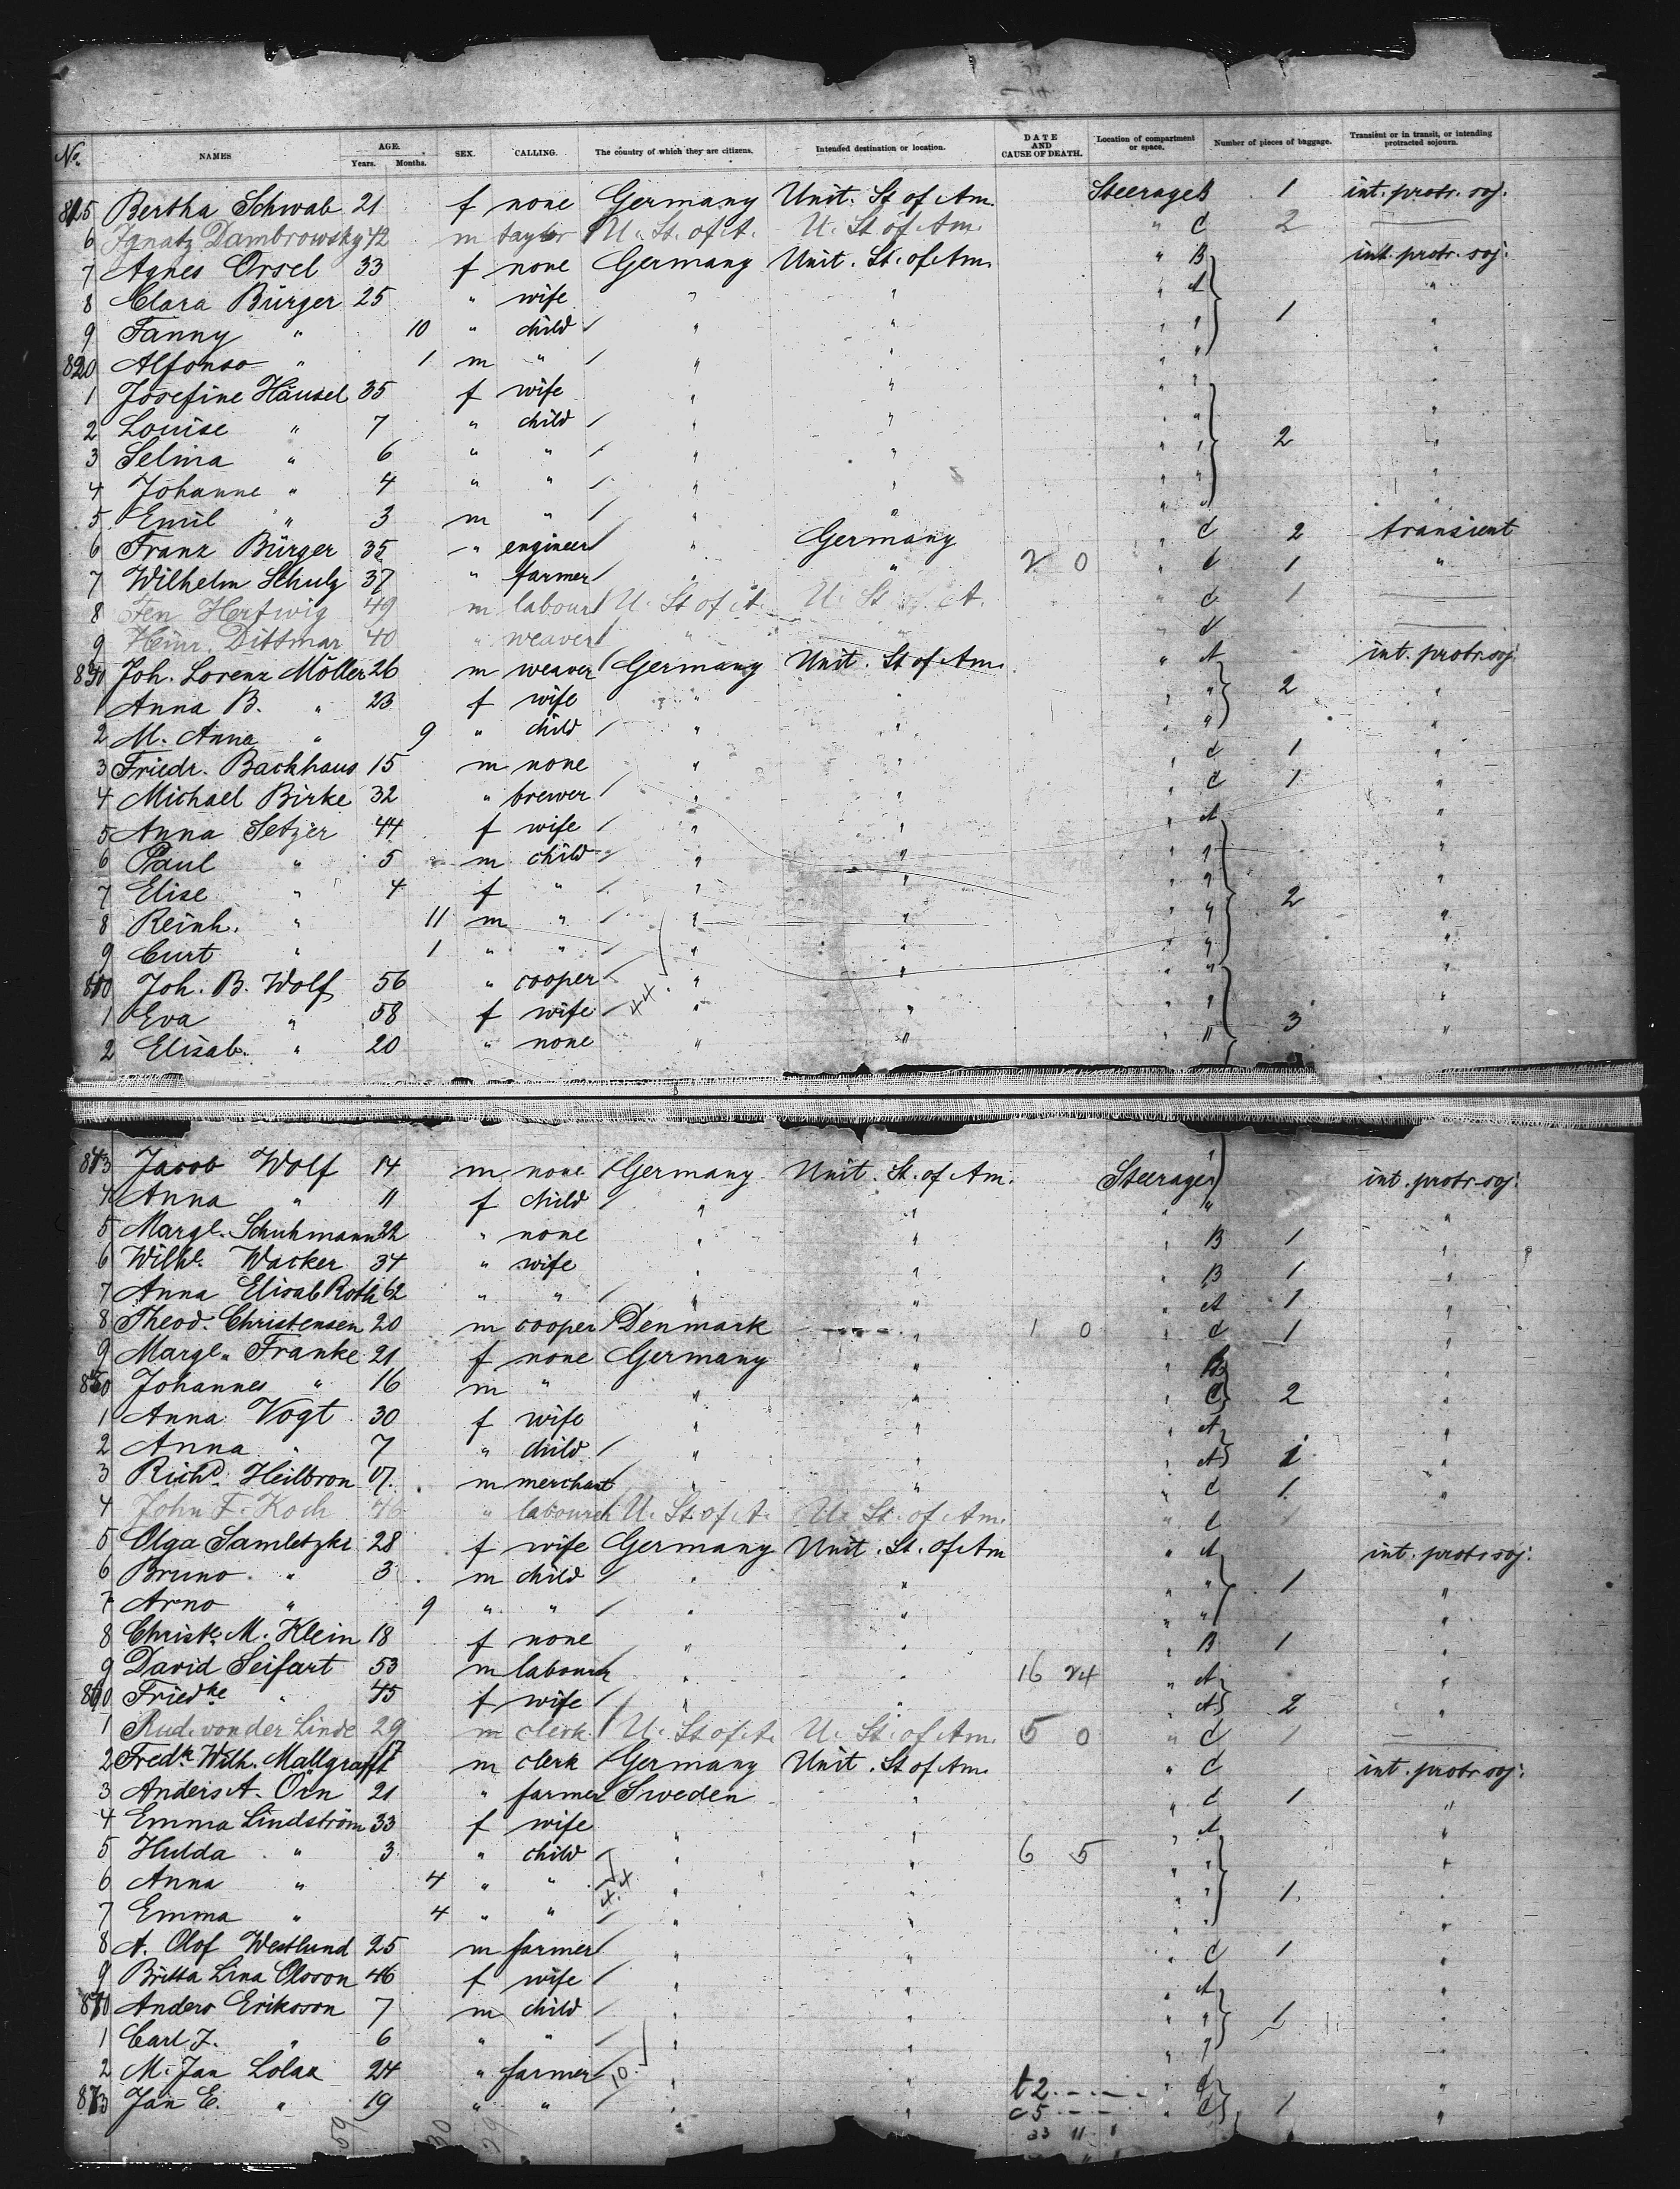 No. NAMES AGE. Years. Months. SEX. CALLING. The country of which they are citizens. Intended destination or location. DATE AND CAUSE OF DEATH. Location of compartment or space. Number of pieces of baggage. Transient or in transit, or intending protracted sojourn.
815 Bertha Schwab 21 f none Germany Unit. St of Am. Steerage B 1 int. protr. soj.
6 Ignatz Dambrowsky 42 m taylor U. St. of A. U. St. of Am. " C 2 —
7 Agnes Orsel 33 f none Germany Unit. St. of Am. " B int. protr. soj.
8 Clara Bürger 25 " wife " " " A "
9 Fanny " 10 " child " " " " 1 "
820 Alfonso " 1 m " " " " " "
1 Josefine Häusel 35 f wife " " " " "
2 Louise " 7 " child " " " " "
3 Selma " 6 " " " " " " 2 "
4 Johanne " 4 " " " " " " "
5 Emil " 3 m " " " " " "
6 Franz Bürger 35 " engineer " Germany " C 2 transient
7 Wilhelm Schulz 37 " farmer " " 2 0 " C 1 "
8 Hertwig 49 m labour U. St of A. U. St of A. " C 1 —
9 Heinr. Dittmar 40 " weaver " " " C —
830 Joh. Lorenz Möller 26 m weaver Germany Unit. St of Am. " A int. protr. soj.
1 Anna B. " 23 f wife " " " " 2 "
2 M. Anna " 9 " child " " " " "
3 Friedr. Backhaus 15 m none " " " C 1 "
4 Michael Birke 32 " brewer " " " C 1 "
5 Anna Setzer 44 f wife " " " A "
6 Paul " 5 m child " " " " "
7 Elise " 4 f " " " " " "
8 Reinh. " 11 m " " " " " 2 "
9 Curt " 1 " " " " " " "
840 Joh. B. Wolf 56 " cooper " " " " "
1 Eva " 58 f wife " " " " "
2 Elisab. " 20 " none " " " " 3 "
843 Jacob Wolf 14 m none Germany Unit. St. of Am. Steerage " int. protr. soj.
4 Anna " 11 f child " " " " "
5 Margt. Schuhmann 22 " none " " " B 1 "
6 Wilhe. Wacker 34 " wife " " " B 1 "
7 Anna Elisab Roth 62 " " " " " A 1 "
8 Theod. Christensen 20 m cooper Denmark " 1 0 " C 1 "
9 Margt. Franke 21 f none Germany " " B "
850 Johannes " 16 m " " " " C 2 "
1 Anna Vogt 30 f wife " " " A "
2 Anna " 7 " child " " " A 1 "
3 Richd. Heilbron 17 m merchant " " " C 1 "
4 John F. Koch 46 " labourer U. St. of A. U. St. of Am. " C 1 —
5 Olga Samletzki 28 f wife Germany Unit. St. of Am " A int. protr. soj.
6 Bruno " 3 m child " " " " 1 "
7 Arno " 9 " " " " " " "
8 Christe. M. Klein 18 f none " " " B 1 "
9 David Seifart 53 m labourer " " 16 24 " A "
860 Friedke " 45 f wife " " " A 2 "
1 Rud. von der Linde 29 m clerk U. St of A. U. St. of Am. 5 0 " C 1 —
2 Fredk. Wilh. Mallgrafft 17 m clerk Germany Unit. St of Am. " C int. protr. soj.
3 Anders A. Örn 21 " farmer Sweden " " C 1 "
4 Emma Lindström 33 f wife " " " A "
5 Hulda " 3 " child " " 6 5 " " "
6 Anna " 4 " " " " " " 1 "
7 Emma " 4 " " " " " " "
8 A. Olof Westlund 25 m farmer " " " C 1 "
9 Britta Lina Olsson 46 f wife " " " A "
870 Anders Eriksson 7 m child " " " " 1 "
1 Carl J. " 6 " " " " " " "
2 M. Jan Lolax 24 " farmer 10 " " " C "
873 Jan E. " 19 " " " " " C 1 "
t 2
c 5
33 11 1
59 30 29